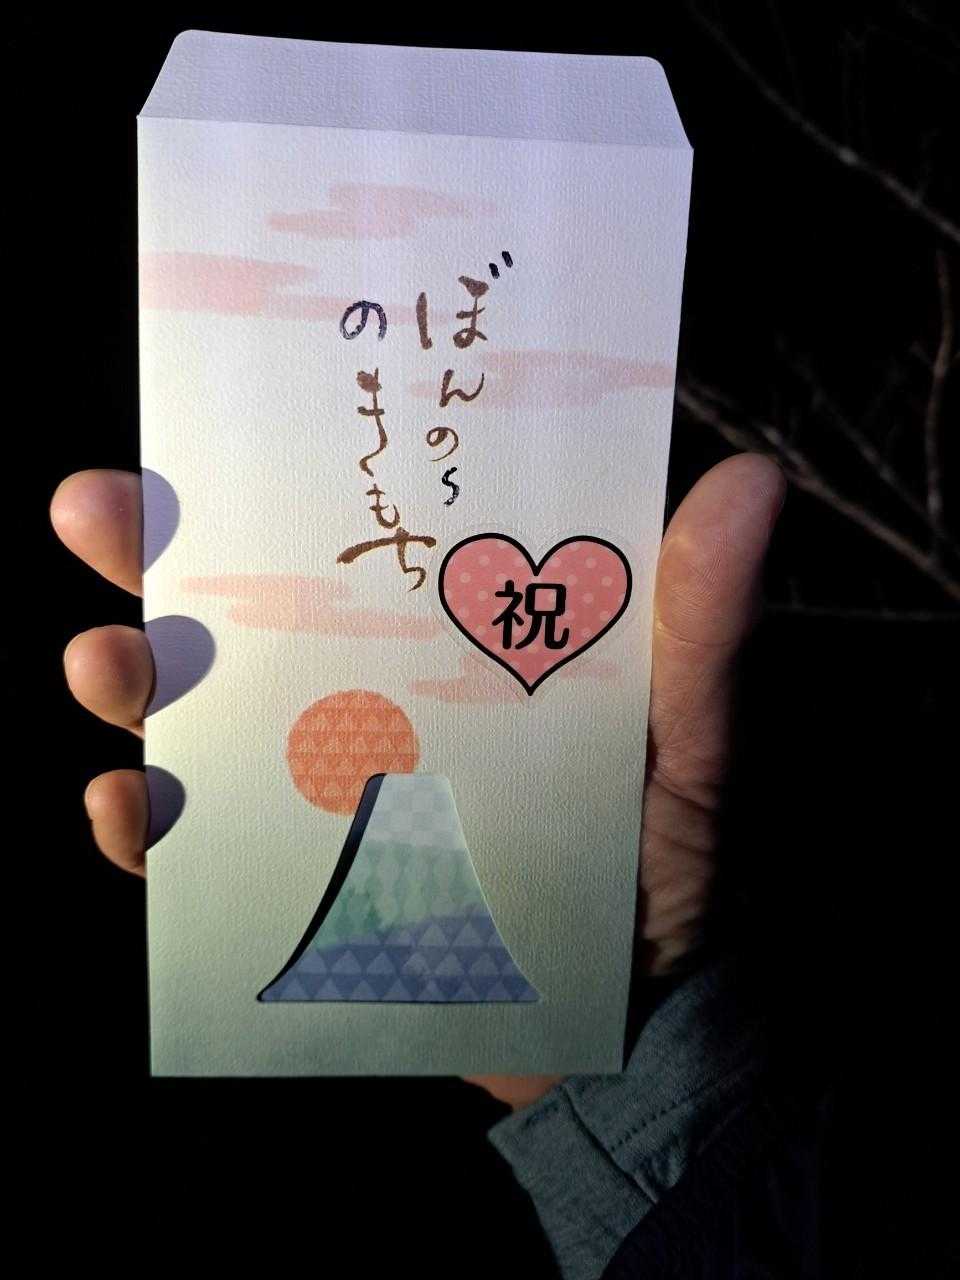 ぼんのう
のきもち
祝